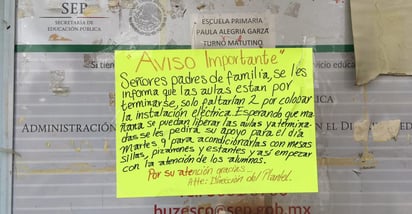 SEP
SECRETARÍA DE
EDUCACIÓN PÚBLICA
ESCUELA PRIMARIA
PAULA ALEGRIA GARZA
TURNO MATUTINO
Si tiene
servicio educ
ADMINISTRACIÓN
"Aviso Importante"
Señores padres de familia, se les
informa que las aulas estan por
terminarse, solo faltarían 2 por colocar
la instalación eléctrica. Esperando que ma
ñana se puedan liberar las aulas ya termina
das se les pedirá, su apoyo para el día
Martes 9 para acondicionarlas con mesas
sillas, pizarrones y estantes y así empezar
con la atención de los alumnos.
Por su atención gracias...
Atte: Dirección del Plantel.
buzesco@sep.gob.mx